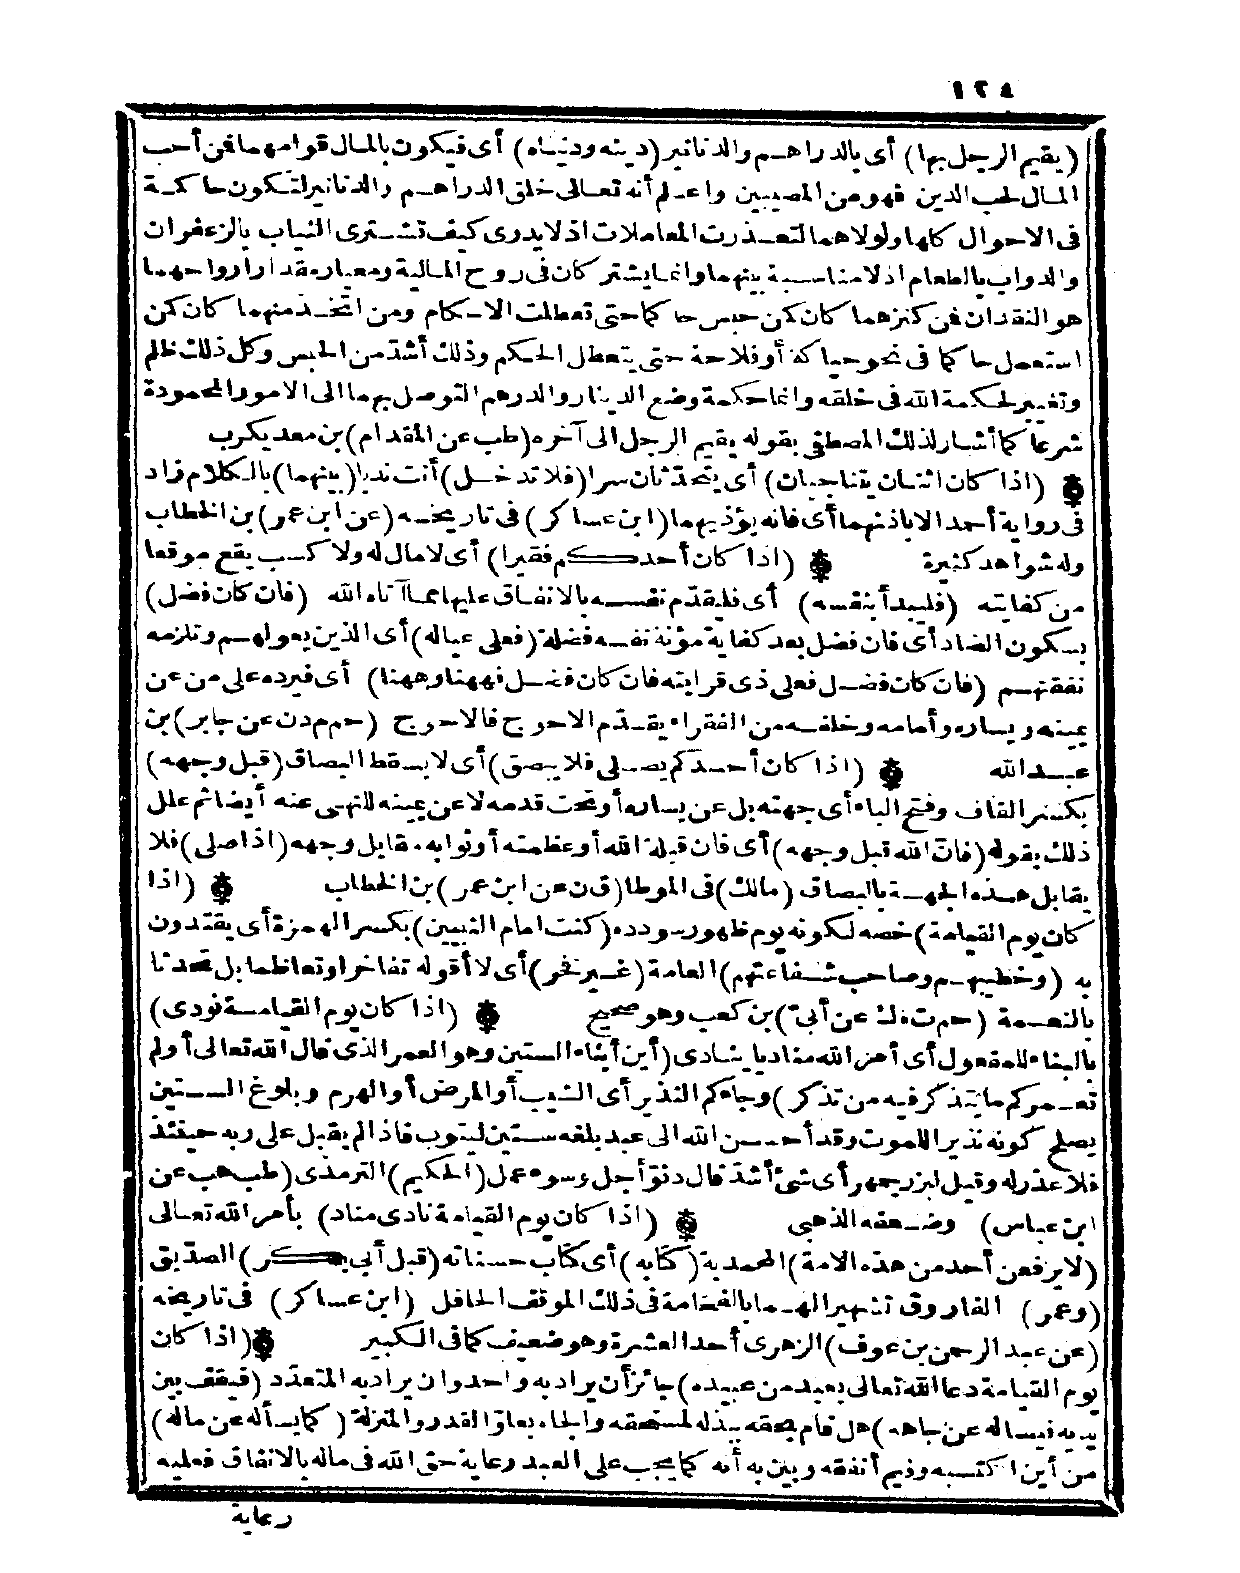 ١٢٨
(يقيم الرجل بها) أى بالدراهم والدنانير (دينه ودنياه) أى فيكون بالمال قوامهما فن أحب
المال لحب الدين فهو من المصيبين واعلم أنه تعالى خلق الدراهم والدنانير لتكون حاكمة
فى الاحوال كلها ولولاهما لتعذرت المعاملات اذ لا يدرى كيف تشترى الثياب بالزعفران
والدواب بالطعام اذ لا مناسبة بينهما وانما يشتركان فى روح المالية ومعيار مقدار أرواحهما
هو النقدان فن كنزهما كان كن حبس حاكما حتى تعطلت الاحكام ومن اتخذ منهما كان كن
استعمل حاكما فى نحو حياكة أو فلاحة حتى يتعطل الحكم وذلك أشدّ من الحبس وكل ذلك ظلم
وتغيير لحكمة الله فى خلقه وانما حكمة وضع الدينار والدرهم التوصل بهما الى الامور المحمودة
شرعا كما أشار لذلك المصطفى بقوله يقيم الرجل الى آخره (طب عن المقدام) بن معد يكرب
(اذا كان اثنان يتناجيان) أى يتحدّثان سرا (فلا تدخل) أنت ندبا (بينهما) بالكلام زاد
فى رواية أحمد الا باذنهما أى فانه يؤذيهما (ابن عساكر) فى تاريخه (عن ابن عمر) بن الخطاب
وله شواهد كثيرة (اذا كان أحدكم فقيرا) أى لا مال له ولا كسب يقع موقعا
من كفايته (فليبدأ بنفسه) أى فليقدّم نفسه بالانفاق عليها مما آتاه الله (فان كان فضل)
بسكون الضاد أى فان فضل بعد كفاية مؤنة نفسه فضلة (فعلى عياله) أى الذين يعولهم وتلزمه
نفقتهم (فان كان فضل فعلى ذى قرابته فان كان فضل فههنا وههنا) أى فيرده على من عن
يمينه ويساره وأمامه وخلفه من الفقراء يقدّم الاحوج فالاحوج (حم م د ن عن جابر) بن
عبد الله (اذا كان أحدكم يصلى فلا يبصق) أى لا يسقط البصاق (قبل وجهه)
بكسر القاف وفتح الباء أى جهته بل عن يساره أو تحت قدمه لا عن يمينه للنهى عنه أيضا ثم علل
ذلك بقوله (فانّ الله قبل وجهه) أى فان قبلة الله أو عظمته أو ثوابه مقابل وجهه (اذا صلى) فلا
يقابل هذه الجهة بالبصاق (مالك) فى الموطا (ق ن عن ابن عمر) بن الخطاب (اذا
كان يوم القيامة) خصه لكونه يوم ظهور سودده (كنت امام النبيين) بكسر الهمزة أى يقتدون
به (وخطيبهم وصاحب شفاعتهم) العامة (غير فخر) أى لا أقوله تفاخرا وتعاظما بل تحدثا
بالنعمة (حم ت ه ك عن أبىّ) بن كعب وهو صحيح (اذا كان يوم القيامة نودى)
بالبناء للمفعول أى أمر الله مناديا ينادى (أين أبناء الستين وهو العمر الذى قال الله تعالى أولم
نعمركم ما يتذكر فيه من تذكر) وجاءكم النذير أى الشيب أو المرض أو الهرم وبلوغ الستين
يصلح كونه نذير الموت وقد أحسن الله الى عبد بلغه ستين ليتوب فاذا لم يقبل على ربه حينئذ
فلا عذر له وقيل لبزرجمهر أى شئ أشدّ قال دنوّ أجل وسوء عمل (الحكيم) الترمذى (طب هب عن
ابن عباس) وضعفه الذهبى (اذا كان يوم القيامة نادى مناد) بأمر الله تعالى
(لا يرفعن أحد من هذه الامة) المحمدية (كتابه) أى كتاب حسناته (قبل أبى بكر) الصدّيق
(وعمر) الفاروق تشهيرا لهما بالفخامة فى ذلك الموقف الحافل (ابن عساكر) فى تاريخه
(عن عبد الرحمن بن عوف) الزهرى أحد العشرة وهو ضعيف كما فى الكبير (اذا كان
يوم القيامة دعا الله تعالى بعبد من عبيده) جائز أن يراد به واحد وان يراد به المتعدّد (فيقف بين
يديه فيسأله عن جاهه) هل قام بحقه ببذله لمستحقه والجاه علوّ القدر والمنزلة (كما يسأله عن ماله)
من أين اكتسبه وفيم أنفقه وبين به أنه كما يجب على العبد رعاية حق الله فى ماله بالانفاق فعليه
رعاية